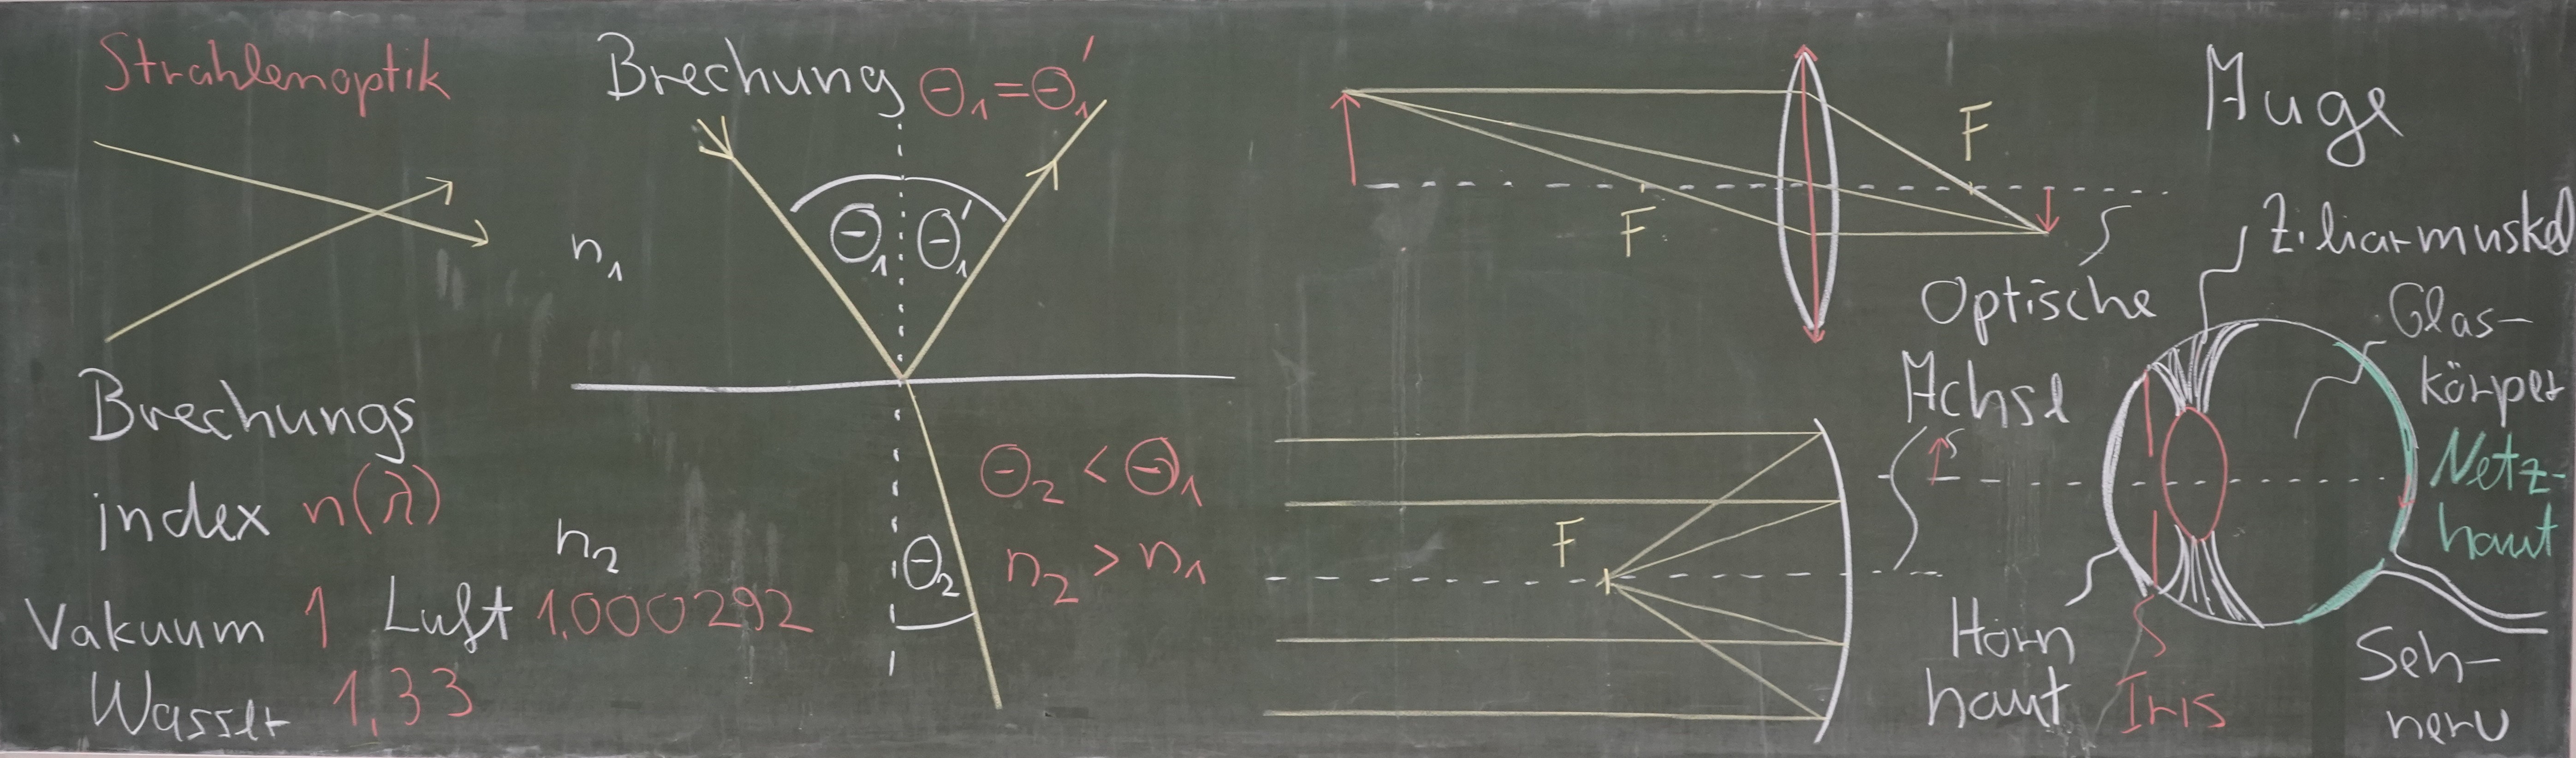 Strahlenoptik
Brechungs
index n(λ)
Vakuum 1 Luft 1,000292
Wasser 1,33
Brechung Θ₁=Θ₁'
Θ₁ Θ₁'
n₁
Θ₂ < Θ₁
n₂ > n₁
n₂
Θ₂
F
F
Optische
Achse
F
Auge
Ziliarmuskel
Glas-
körper
Netz-
haut
Horn
haut
Iris
Seh-
nerv